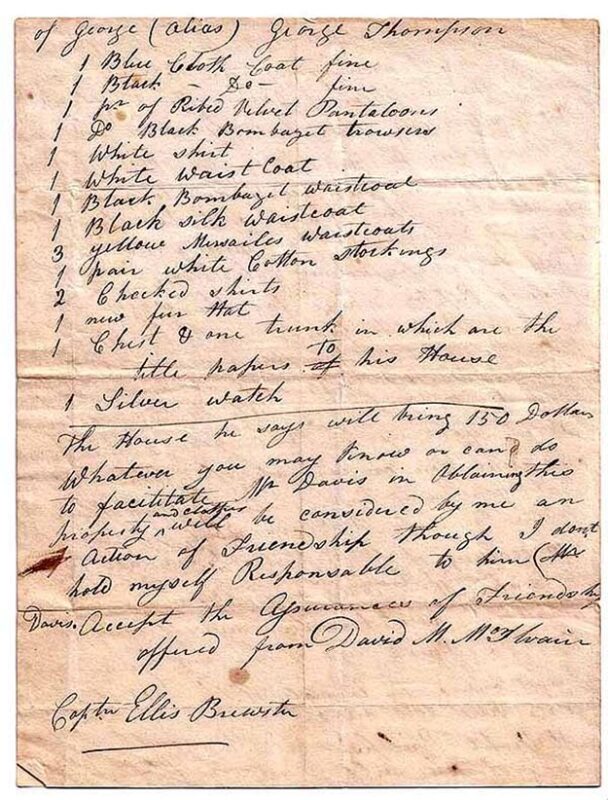 of George (alias) George Thompson
1 Blue Cloth Coat fine
1 Black - Do - fine
1 pr of Ribed Velvet Pantaloons
1 Do Black Bombazet trowsers
1 White shirt
1 White waist Coat
1 Black Bombazet waistcoat
1 Black silk waistcoat
3 yellow Mersailes waistcoats
1 pair white Cotton stockings
2 Checked shirts
1 new fur Hat
1 Chest & one trunk in which are the
title papers of TO his House
1 Silver watch
The House he says will bring 150 Dollars
Whatever you may know or can do
to facilitate Mr Davis in Obtaining this
property and clothes will be considered by me an
Action of Friendship though I dont
hold myself Responsable to him (Mr
Davis. Accept the Assurances of Friendship
offered from David M. McIlvain
Captn Ellis Brewster